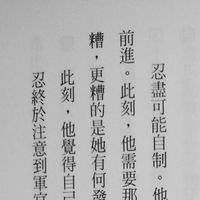 忍盡可能自制。他
前進。此刻，他需要那
糟，更糟的是她有何發
此刻，他覺得自己
忍終於注意到軍官